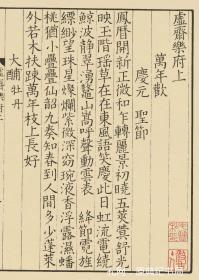 虛齋樂府上
萬年歡
慶元聖節
鳳曆開新正微和乍轉麗景初曉五莢蓂舒光
映玉階瑤草在在東風語笑慶此日虹流電繞
鯨波靜翠湧鼇山嵩呼聲動雲表 絳節霓旌
縹緲望珠星燦爛紫微深窈琬液香浮露濕蟠
桃猶小疊疊仙韶九奏知春到人間多少蓬萊
外若木扶踈萬年枝上長好
大酺 牡丹